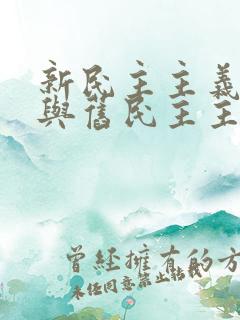 新民主主義
與舊民主主
曾經擁有的方
未任同意禁止結載